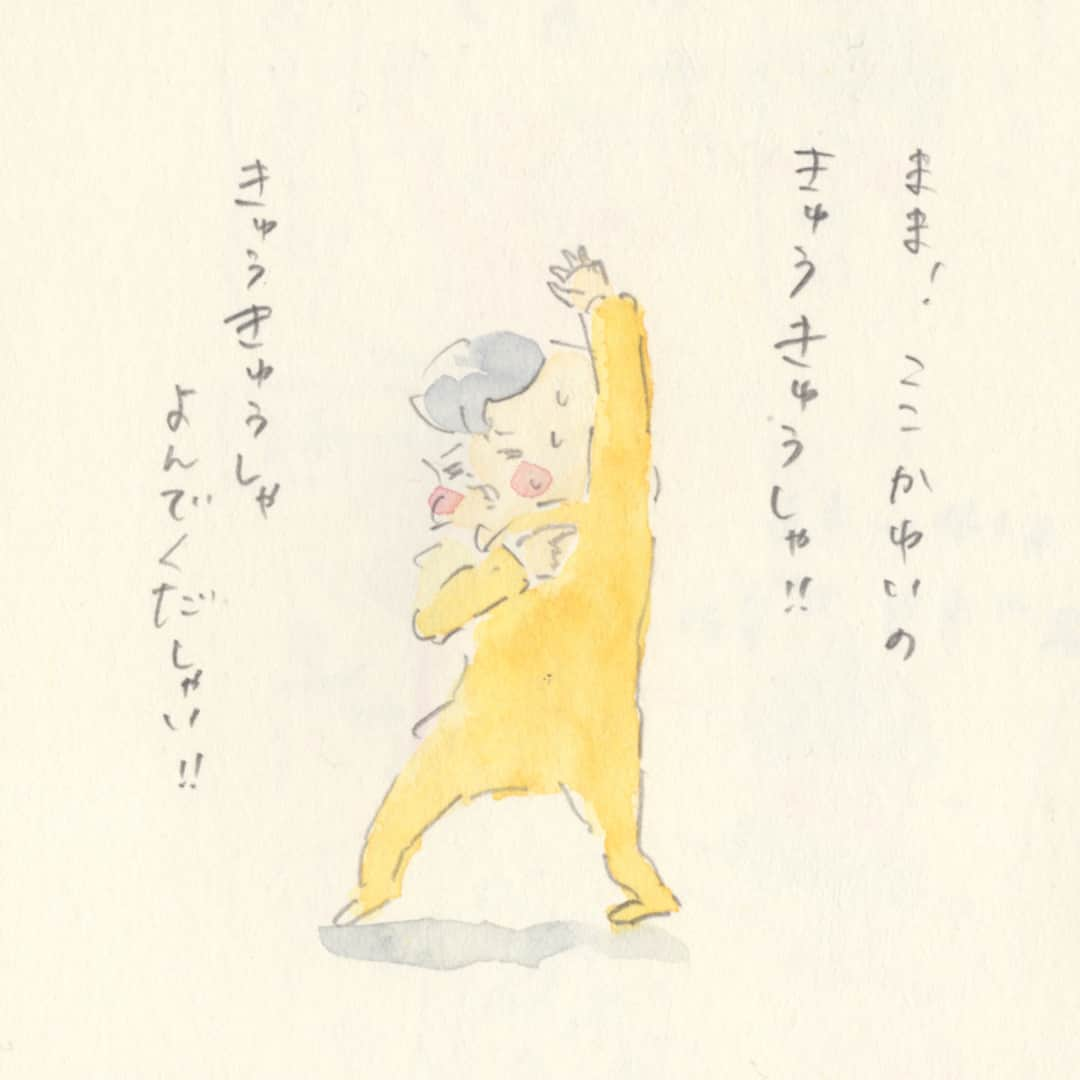 まま！ ここ かゆいの
きゅうきゅうしゃ!!
きゅうきゅうしゃ
よんでくだしゃい!!